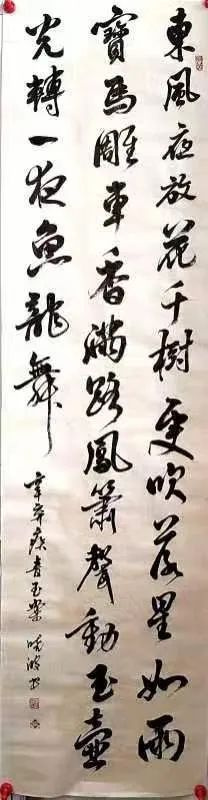 東風夜放花千樹更吹落星如雨
寶馬雕車香滿路鳳簫聲動玉壺
光轉一夜魚龍舞
辛弃疾青玉案 曉波书